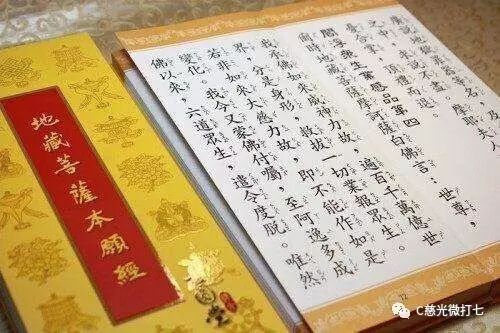 頂禮而退。
閻浮眾生業感品第四
爾時地藏菩薩摩訶薩白佛言：世尊，
我承佛如來威神力故，遍百千萬億世
界，分是身形，救拔一切業報眾生。
若非如來大慈力故，即不能作如是
變化。我今又蒙佛付囑，至阿逸多成
佛以來，六道眾生，遣令度脫。唯然
地藏菩薩本願經
C慈光微打七